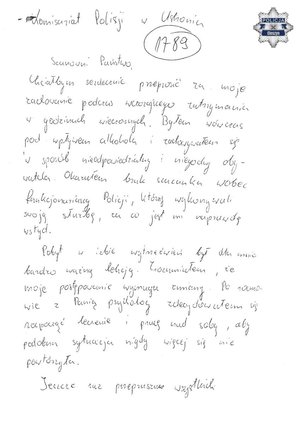 Komisariat Policji w Ustroniu
1789
POLICJA
Cieszyn
Szanowni Państwo,
Chciałbym serdecznie przeprosić za moje
zachowanie podczas wczorajszego zatrzymania
w godzinach wieczornych. Byłem wówczas
pod wpływem alkoholu i zachowywałem się
w sposób nieodpowiedzialny i niegodny oby-
watela. Okazałem brak szacunku wobec
funkcjonariuszy Policji, którzy wykonywali
swoją służbę, za co jest mi naprawdę
wstyd.
Pobyt w izbie wytrzeźwień był dla mnie
bardzo ważną lekcją. Zrozumiałem, że
moje postępowanie wymaga zmiany. Po rozmo-
wie z Panią psycholog zdecydowałem się
rozpocząć leczenie i pracę nad sobą, aby
podobna sytuacja nigdy więcej się nie
powtórzyła.
Jeszcze raz przepraszam wszystkich